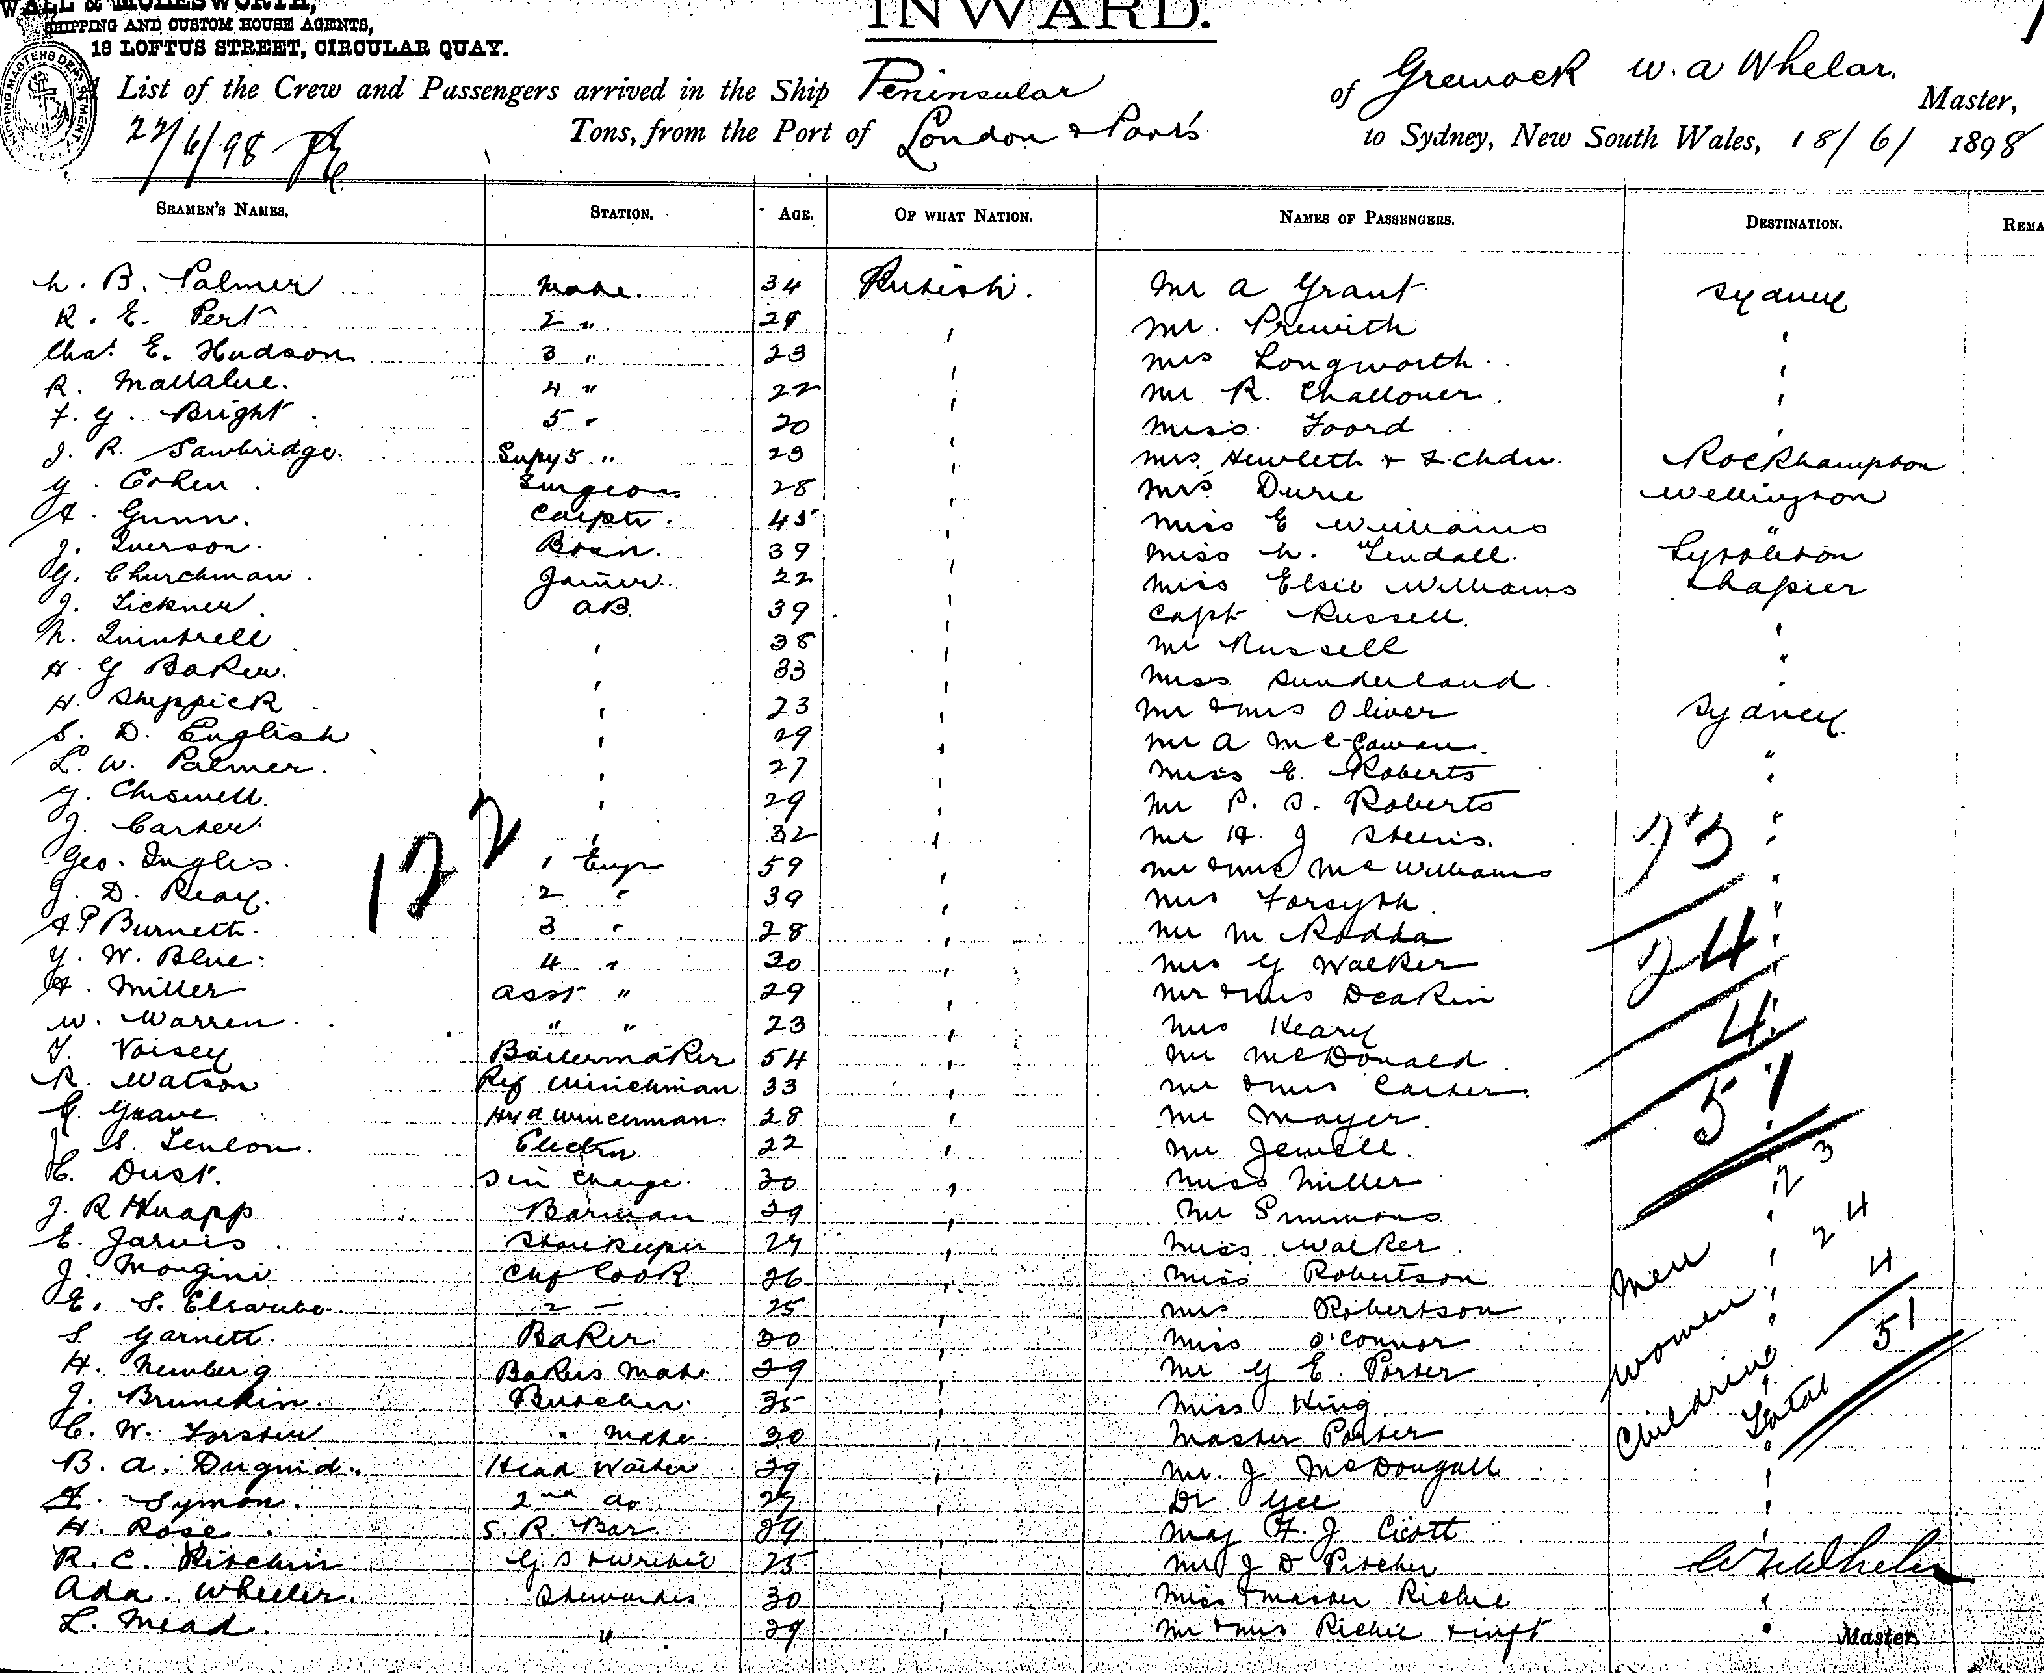 WALL & MOLESWORTH,
SHIPPING AND CUSTOM HOUSE AGENTS,
18 LOFTUS STREET, CIRCULAR QUAY.
INWARD.
List of the Crew and Passengers arrived in the Ship Peninsular of Greenock W. A Whelar. Master,
22/6/98 Tons, from the Port of London & Ports to Sydney, New South Wales, 18/6/ 1898
SEAMEN'S NAMES. STATION. AGE. OF WHAT NATION. NAMES OF PASSENGERS. DESTINATION. REMA
B. Palmer Mate. 34 British. Mr A Grant Sydney
R. E. Pert 2 " Mr. Prewith
Chas. E. Hudson 3 " 23 Mrs Longworth
R. 4 " 22 Mr R. Challoner
Bright 5 " 20 Miss Foord
J. R. Sawbridge. Supy 5 " 23 Mrs Hewleth & Rockhampton
G. Cohen Surgeon 28 Mrs Durie Wellington
A. Gunn. Carptr. 45 Miss E Williams "
J. Iverson. Bosn. 39 Miss Tendall. Lyttleton
G. Churchman. Joiner. 22 Miss Elsie Williams Napier
J. Tickner. AB. 39 Capt Russell.
Quintrell 38 Mr Russell
H. G Baker. 33 Miss Sunderland.
H. Sheppick 23 Mr & Mrs Oliver Sydney
S. D. English 29 Mr A McGowan.
L. W. Palmer. 27 Miss E. Roberts
Chiswell. 29 Mr P. S. Roberts
J. Carter. 32 Mr H. J
Geo. Inglis. 1 Engr 59 Mr & Mrs McWilliams
J. D. Reay. 2 " 39 Mrs Forsyth.
A P Burnett. 3 " 28 Mr M Rodda
W. Blue. 4 " 30 Mrs G Walker
A. Miller Asst " 29 Mr & Mrs Deakin
W. Warren. " " 23 Mrs Keary
Voisey Boilermaker 54 Mr McDonald
R. Watson Ref Winchman 33 Mr & Mrs Carter.
Grave Hyd Winchman 28 Mr Mayer.
S. Tenlon. Electrn 22 Mr Jewell.
C. Dust. S in Charge 30 Miss Miller
J. R Knapp Barman 29 Mr Simmons
E. Jarvis Storekeeper 27 Miss Walker
J. Mongini Chf Cook 36 Miss Robertson
E. S. 2 — 25 Mrs Robertson
S Garnett. Baker 30 Miss O'Connor
H. Newberg Bakers Mate 29 Mr G E. Porter
J. Brunckin. Butcher. 35 Miss King
C. W. Forster " Mate 30 Master Porter
B. A. Duguid. Head Waiter 29 Mr. J McDougall
Symon. 2nd do 27 Dr Gee
H. Rose S. R. Bar 29 Maj F. J. Cicott
R. C. Ritchin 25 J D Pitcher
Ada Wheeler. Stewardess 30 Miss & Master Richie
L. Mead. " 29 Mr & Mrs Richie & inft
122
23
24
4
51
Men 23
Women 24
Children 4
Total 51
Master